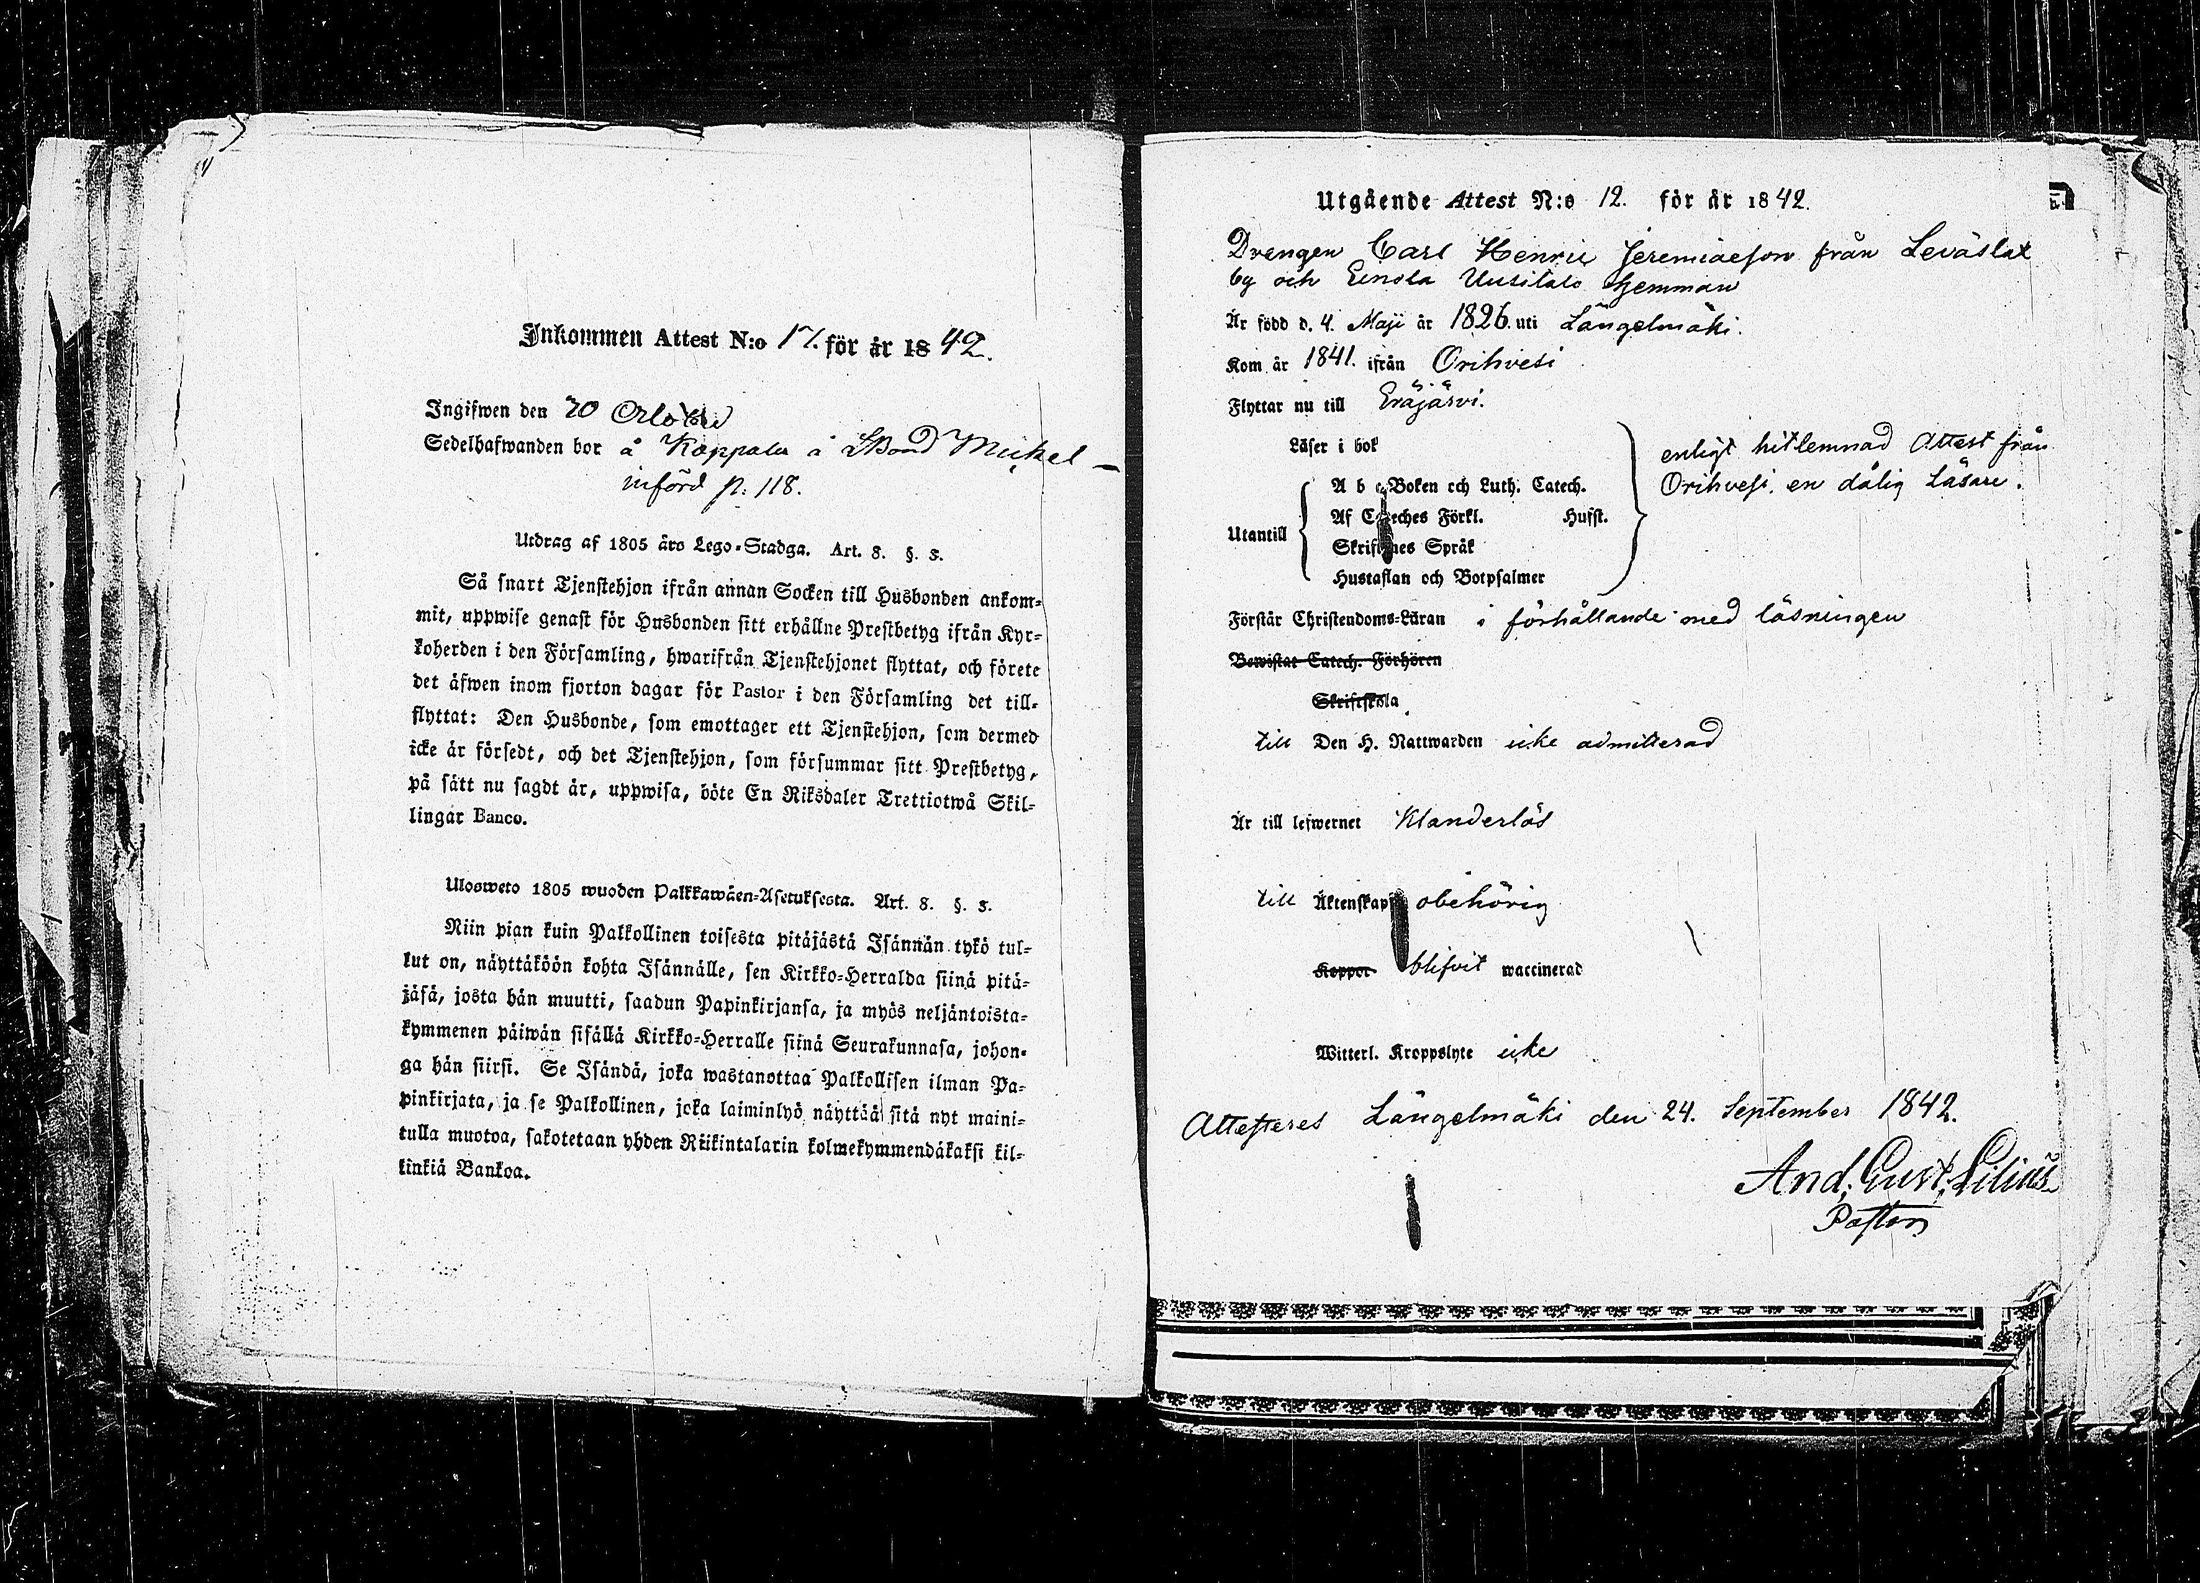 Inkommen Attest N:o 17. för år 1842.
Ingifwen den 20 October
Sedelhafwanden bor å Koppala å Bond Mickel –
införd p. 118.
Utdrag af 1805 års Lego-Stadga. Art. 8. §. 3.
Så snart Tjenstehjon ifrån annan Socken till Husbonden ankom-
mit, uppwise genast för Husbonden sitt erhållne Prestbetyg ifrån Kyr-
koherden i den Församling, hwarifrån Tjenstehjonet flyttat, och förete
det äfwen inom fjorton dagar för Pastor i den Församling det till-
flyttat: Den Husbonde, som emottager ett Tjenstehjon, som dermed
icke är försedt, och det Tjenstehjon, som försummar sitt Prestbetyg,
på sätt nu sagdt är, uppwisa, böte En Riksdaler Trettiotwå Skil-
lingar Banco.
Ulosweto 1805 wuoden Palkkawäen-Asetuksesta. Art. 8. §. 3.
Niin pian kuin Palkollinen toisesta pitäjästä Isännän tykö tul-
kut on, näyttäköön kohta Isännälle, sen Kirkko-Herralda siinä pitä-
jäsä, josta hän muutti, saadun Papinkirjansa, ja myös neljäntoista-
kymmenen päiwän sisällä Kirkko-Herralle siinä Seurakunnasa, johon-
ga hän siirsi. Se Isändä, joka wastanottaa Palkollisen ilman Pa-
pinkirjata, ja se Palkollinen, joka laiminlyö näyttää sitä nyt maini-
tulla muotoa, sakotetaan yhden Riikintalarin kolmekymmendäkaksi kil-
linkiä Bankoa.
Utgående Attest N:o 12. för år 1842.
Drengen Carl Henric Jeremiaeson från Leväslax
by och Eenola Uusitalo hemman
Är född d. 4. Maji år 1826. uti Längelmäki.
Kom år 1841. ifrån Orihvesi
Flyttar nu till Eräjärvi.
Läser i bok
enligt hitlemnad Attest från
Orihvesi, en dålig Läsare.
Utantill
A b c Boken och Luth. Catech.
Af Cateches Förkl. Husst.
Skriftenes Språk
Hustaflan och Botpsalmer
Förstår Christendoms-Läran i förhållande med läsningen
Bewistat Catech. Förhören
Skriftskola
till Den H. Nattwarden icke admitterad
Är till lefwernet Klanderlös
till Äktenskap obehörig
Koppor blifvit waccinerad
Witterl. Kroppslyte icke
Attesteres Längelmäki den 24. September 1842.
And. Gust. Lilius
Pastor